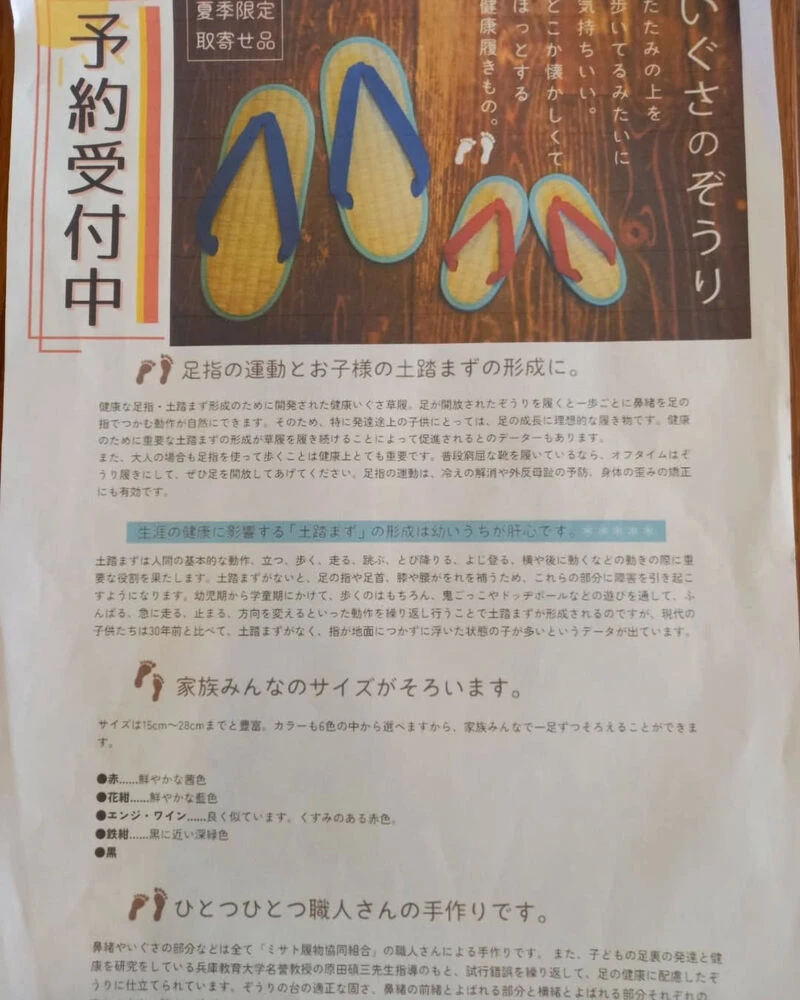 予約受付中
夏季限定
取寄せ品
いぐさのぞうり
たたみの上を
歩いてるみたいに
気持ちいい。
どこか懐かしくて
ほっとする
健康履きもの。
足指の運動とお子様の土踏まずの形成に。
健康な足指・土踏まず形成のために開発された健康いぐさ草履。足が開放されたぞうりを履くと一歩ごとに鼻緒を足の
指でつかむ動作が自然にできます。そのため、特に発達途上の子供にとっては、足の成長に理想的な履き物です。健康
のために重要な土踏まずの形成が草履を履き続けることによって促進されるとのデーターもあります。
また、大人の場合も足指を使って歩くことは健康上とても重要です。普段窮屈な靴を履いているなら、オフタイムはぞ
うり履きにして、ぜひ足を開放してあげてください。足指の運動は、冷えの解消や外反母趾の予防、身体の歪みの矯正
にも有効です。
生涯の健康に影響する「土踏まず」の形成は幼いうちが肝心です。＊＊＊＊＊
土踏まずは人間の基本的な動作、立つ、歩く、走る、跳ぶ、とび降りる、よじ登る、横や後に動くなどの動きの際に重
要な役割を果たします。土踏まずがないと、足の指や足首、膝や腰がそれを補うため、これらの部分に障害を引き起こ
すようになります。幼児期から学童期にかけて、歩くのはもちろん、鬼ごっこやドッヂボールなどの遊びを通して、ふ
んばる、急に走る、止まる、方向を変えるといった動作を繰り返し行うことで土踏まずが形成されるのですが、現代の
子供たちは30年前と比べて、土踏まずがなく、指が地面につかずに浮いた状態の子が多いというデータが出ています。
家族みんなのサイズがそろいます。
サイズは15cm〜28cmまでと豊富。カラーも6色の中から選べますから、家族みんなで一足ずつそろえることができま
す。
●赤……鮮やかな茜色
●花紺……鮮やかな藍色
●エンジ・ワイン……良く似ています。くすみのある赤色。
●鉄紺……黒に近い深緑色
●黒
ひとつひとつ職人さんの手作りです。
鼻緒やいぐさの部分などは全て「ミサト履物協同組合」の職人さんによる手作りです。また、子どもの足裏の発達と健
康を研究をしている兵庫教育大学名誉教授の原田碩三先生指導のもと、試行錯誤を繰り返して、足の健康に配慮したぞ
うりに仕立てられています。ぞうりの台の適正な固さ、鼻緒の前緒とよばれる部分と横緒とよばれる部分それぞれの